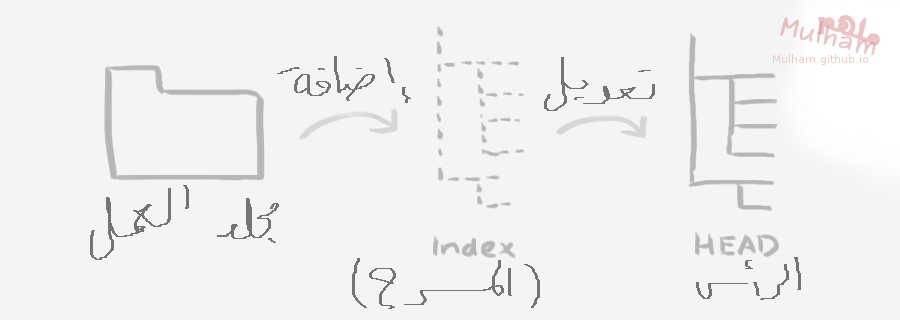 ملهم
Mulham
Mulham.github.io
إضافة
تعديل
مجلد العمل
Index
(المسرح)
HEAD
الرأس